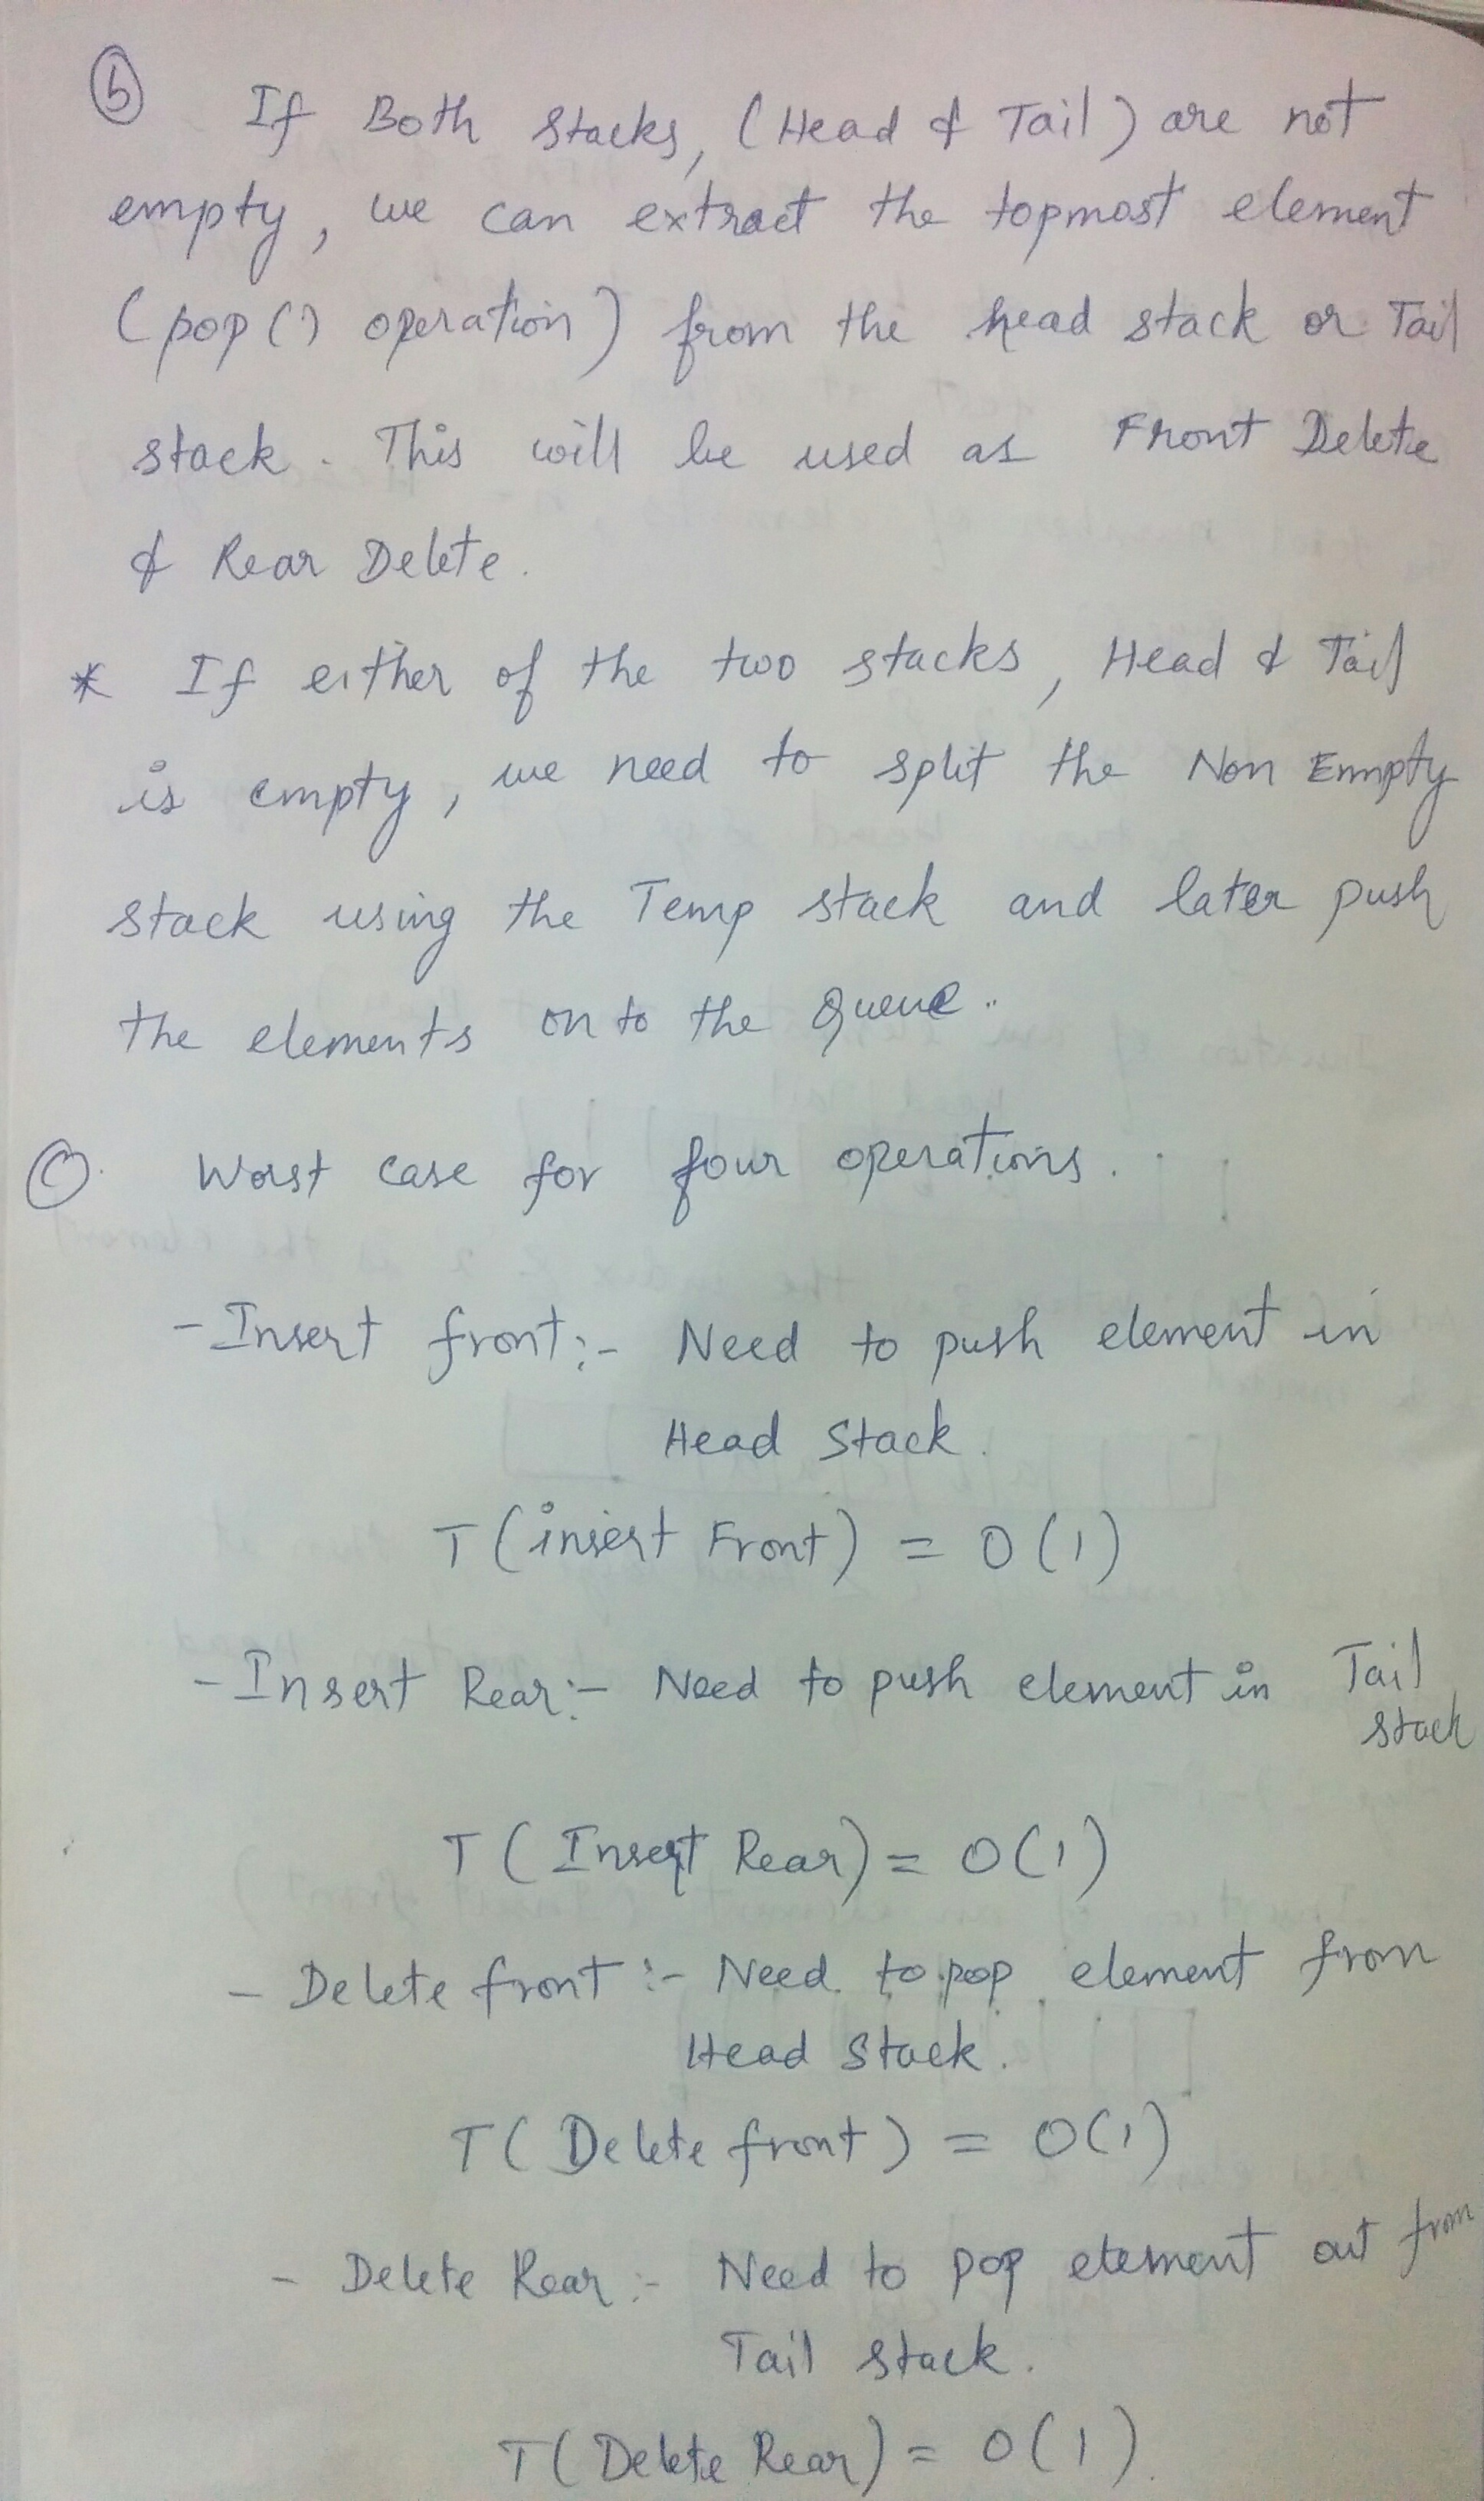 (b) If Both Stacks, (Head & Tail) are not
empty, we can extract the topmost element
(pop() operation) from the head stack or Tail
stack. This will be used as Front Delete
& Rear Delete.
* If either of the two stacks, Head & Tail
is empty, we need to split the Non Empty
stack using the Temp stack and later push
the elements on to the Queue..
(C). Worst case for four operations.
- Insert front:- Need to push element in
Head Stack.
T(insert Front) = O(1)
- Insert Rear:- Need to push element in Tail
stack
T(Insert Rear) = O(1)
- Delete front:- Need to pop element from
Head Stack.
T(Delete front) = O(1)
- Delete Rear:- Need to pop element out from
Tail stack.
T(Delete Rear) = O(1).